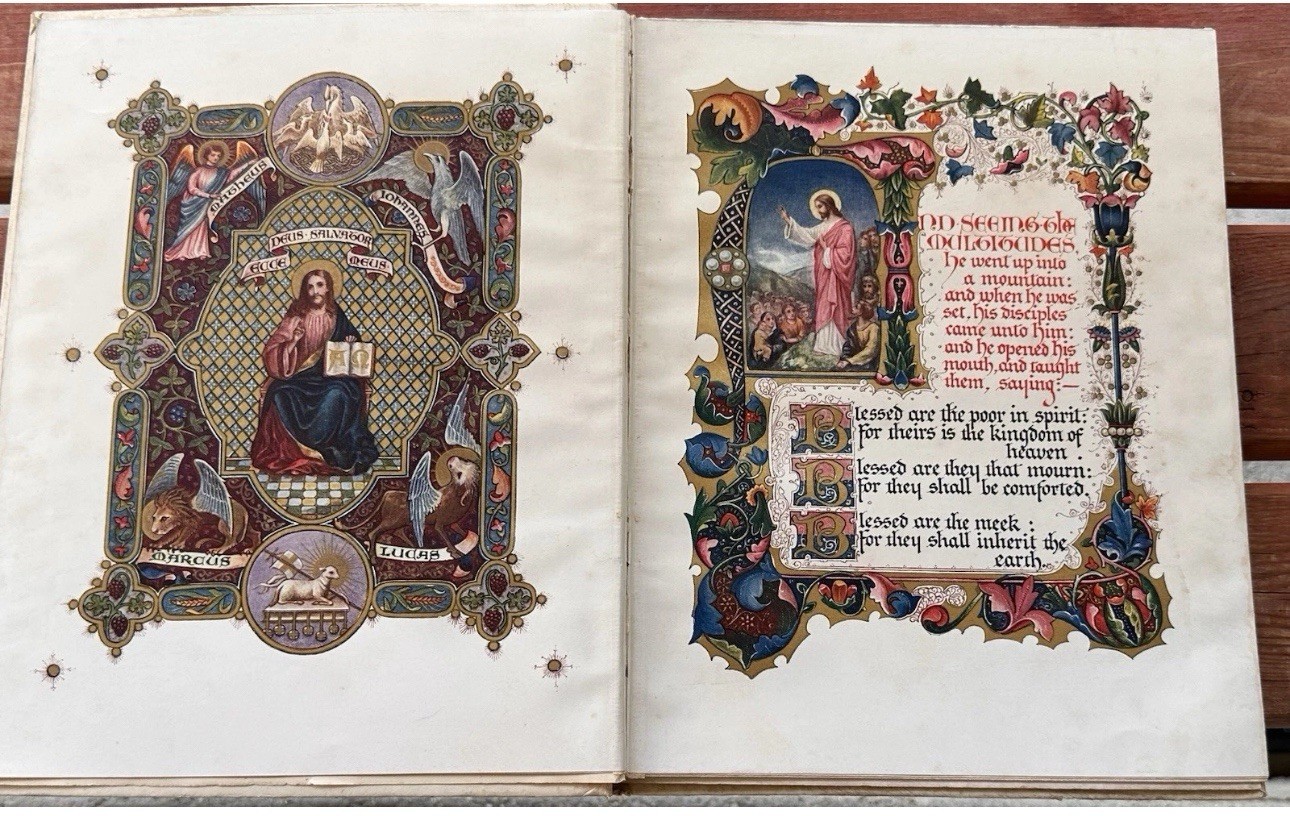 MATHEUS
IOHANNES
DEUS·SALVATOR
ECCE MEUS
A Ω
MARCUS
LUCAS
AND SEEING·the
MULTITUDES,
he went up into
a mountain:
and when he was
set, his disciples
came unto him:
and he opened his
mouth, and taught
them, saying:—
Blessed are the poor in spirit:
for theirs is the kingdom of
heaven.
Blessed are they that mourn:
for they shall be comforted.
Blessed are the meek:
for they shall inherit the
earth.